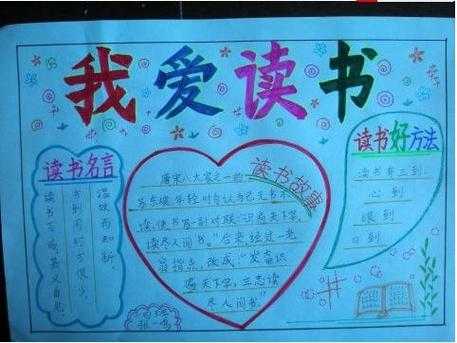 我爱读书
读书名言
温故而知新。
书到用时方恨少。
读书百遍其义自见
读书故事
唐宋八大家之一的
苏东坡年轻时自认为已无书不
读，便书写一副对联“识遍天下字，
读尽人间书。”后来，经过一老
翁指点，改成“发奋识
遍天下字，立志读
尽人间书。”
读书好方法
读书有三到：
心到
眼到
口到